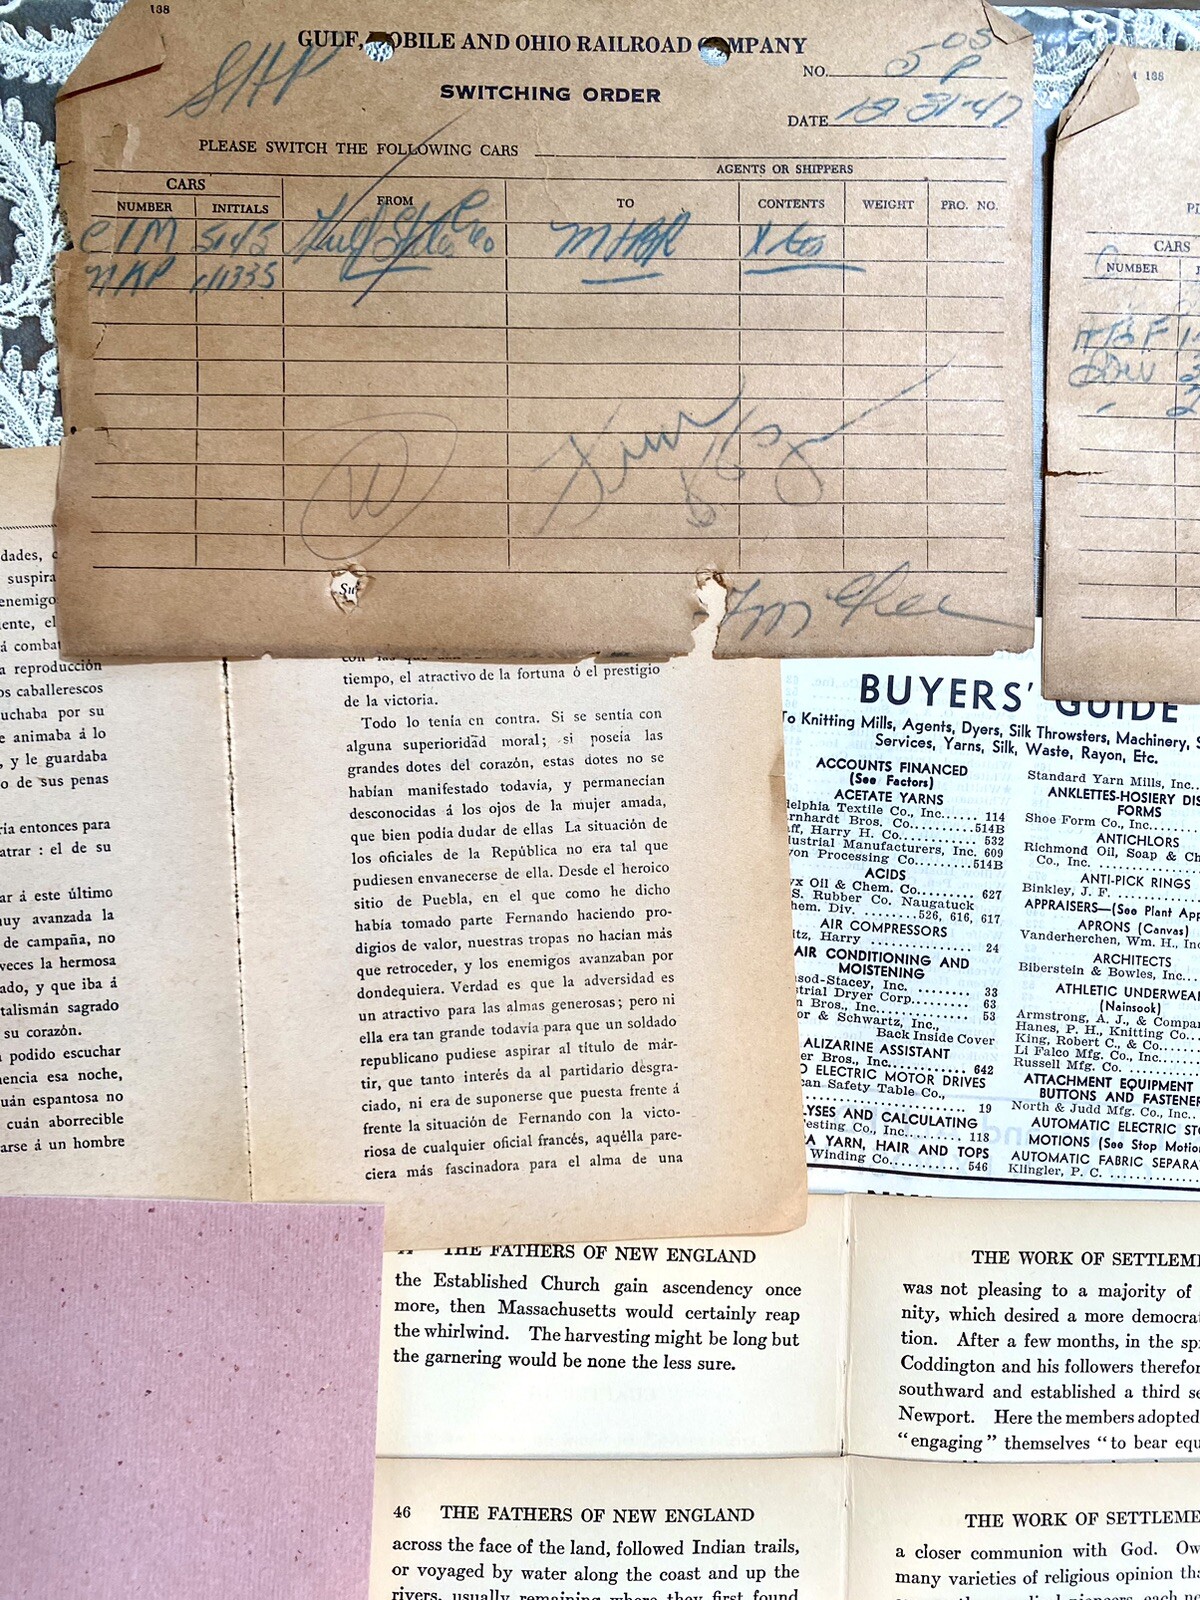 138
GULF, MOBILE AND OHIO RAILROAD COMPANY
NO. 5 05 P
SWITCHING ORDER
DATE 12-31-47
PLEASE SWITCH THE FOLLOWING CARS
AGENTS OR SHIPPERS
CARS
NUMBER INITIALS FROM TO CONTENTS WEIGHT PRO. NO.
CIM 5145
NKP 11335
Su
138
CARS
NUMBER
dades,
suspira
enemigo
ente, el
á comba
a reproducción
os caballerescos
uchaba por su
e animaba á lo
, y le guardaba
o de sus penas
ría entonces para
atrar : el de su
ar á este último
muy avanzada la
de campaña, no
veces la hermosa
ado, y que iba á
talismán sagrado
su corazón.
podido escuchar
encia esa noche,
uán espantosa no
cuán aborrecible
arse á un hombre
tiempo, el atractivo de la fortuna ó el prestigio
de la victoria.
Todo lo tenía en contra. Si se sentía con
alguna superioridad moral; si poseía las
grandes dotes del corazón, estas dotes no se
habían manifestado todavía, y permanecían
desconocidas á los ojos de la mujer amada,
que bien podía dudar de ellas La situación de
los oficiales de la República no era tal que
pudiesen envanecerse de ella. Desde el heroico
sitio de Puebla, en el que como he dicho
había tomado parte Fernando haciendo pro-
digios de valor, nuestras tropas no hacían más
que retroceder, y los enemigos avanzaban por
dondequiera. Verdad es que la adversidad es
un atractivo para las almas generosas; pero ni
ella era tan grande todavía para que un soldado
republicano pudiese aspirar al título de már-
tir, que tanto interés da al partidario desgra-
ciado, ni era de suponerse que puesta frente á
frente la situación de Fernando con la victo-
riosa de cualquier oficial francés, aquélla pare-
ciera más fascinadora para el alma de una
BUYERS' GUIDE
To Knitting Mills, Agents, Dyers, Silk Throwsters, Machinery, S
Services, Yarns, Silk, Waste, Rayon, Etc.
ACCOUNTS FINANCED
(See Factors)
ACETATE YARNS
delphia Textile Co., Inc...... 114
rnhardt Bros. Co..........514B
ff, Harry H. Co............. 532
ustrial Manufacturers, Inc. 609
von Processing Co..........514B
ACIDS
yx Oil & Chem. Co......... 627
S. Rubber Co. Naugatuck
hem. Div. ........526, 616, 617
AIR COMPRESSORS
tz, Harry ................ 24
AIR CONDITIONING AND
MOISTENING
sod-Stacey, Inc. ........ 33
strial Dryer Corp......... 63
n Bros., Inc.............. 53
or & Schwartz, Inc.,
Back Inside Cover
ALIZARINE ASSISTANT
er Bros., Inc............. 642
ELECTRIC MOTOR DRIVES
can Safety Table Co.,
................ 19
LYSES AND CALCULATING
Testing Co., Inc......... 118
A YARN, HAIR AND TOPS
Winding Co............ 546
Standard Yarn Mills, Inc..
ANKLETTES-HOSIERY DIS
FORMS
Shoe Form Co., Inc........
ANTICHLORS
Richmond Oil, Soap & Ch
Co., Inc. ..........
ANTI-PICK RINGS
Binkley, J. F. .........
APPRAISERS—(See Plant App
APRONS (Canvas)
Vanderherchen, Wm. H., Inc
ARCHITECTS
Biberstein & Bowles, Inc...
ATHLETIC UNDERWEA
(Nainsook)
Armstrong, A. J., & Compa
Hanes, P. H., Knitting Co...
King, Robert C., & Co.....
Li Falco Mfg. Co., Inc.....
Russell Mfg. Co. .........
ATTACHMENT EQUIPMENT
BUTTONS AND FASTENER
North & Judd Mfg. Co., Inc...
AUTOMATIC ELECTRIC STO
MOTIONS (See Stop Motio
AUTOMATIC FABRIC SEPARA
Klingler, P. C. ...........
THE FATHERS OF NEW ENGLAND
the Established Church gain ascendency once
more, then Massachusetts would certainly reap
the whirlwind. The harvesting might be long but
the garnering would be none the less sure.
THE WORK OF SETTLEME
was not pleasing to a majority of
nity, which desired a more democra
tion. After a few months, in the spr
Coddington and his followers therefor
southward and established a third se
Newport. Here the members adopted
"engaging" themselves "to bear equ
46 THE FATHERS OF NEW ENGLAND
across the face of the land, followed Indian trails,
or voyaged by water along the coast and up the
rivers, usually remaining where they first found
THE WORK OF SETTLEME
a closer communion with God. Ow
many varieties of religious opinion tha